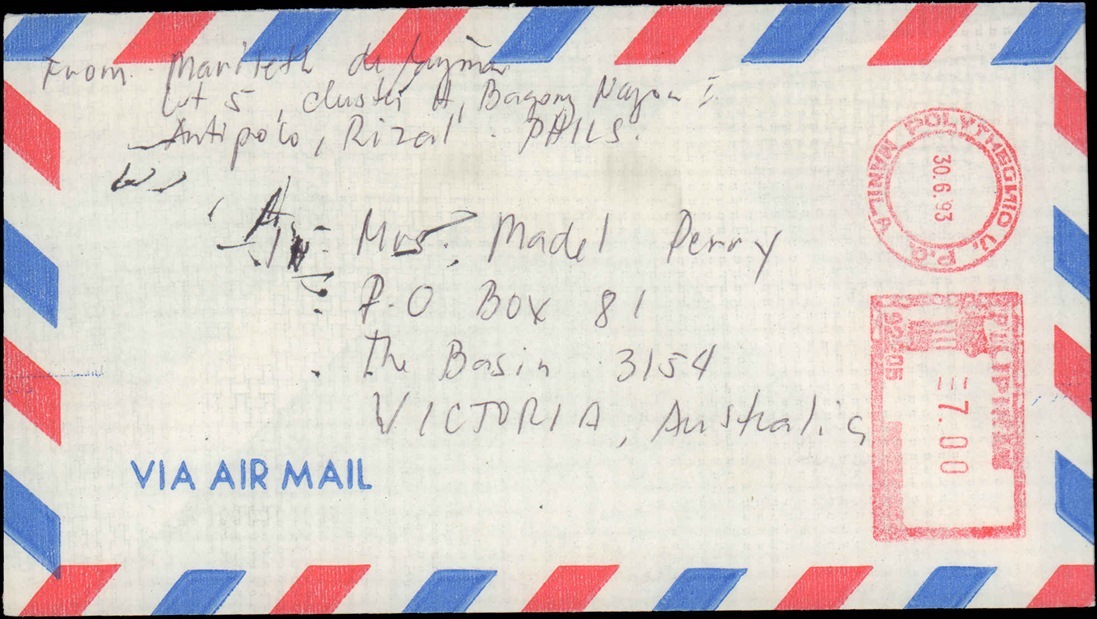 From Marileth de Guzman
Lot 5, cluster A, Bagong Nayon I
Antipolo, Rizal. PHILS.
Mrs. Madel Perry
P.O Box 81
The Basin 3154
VICTORIA, Australia
VIA AIR MAIL
MANILA POLYTHECNIC U. P.O.
30.6.93
7.00